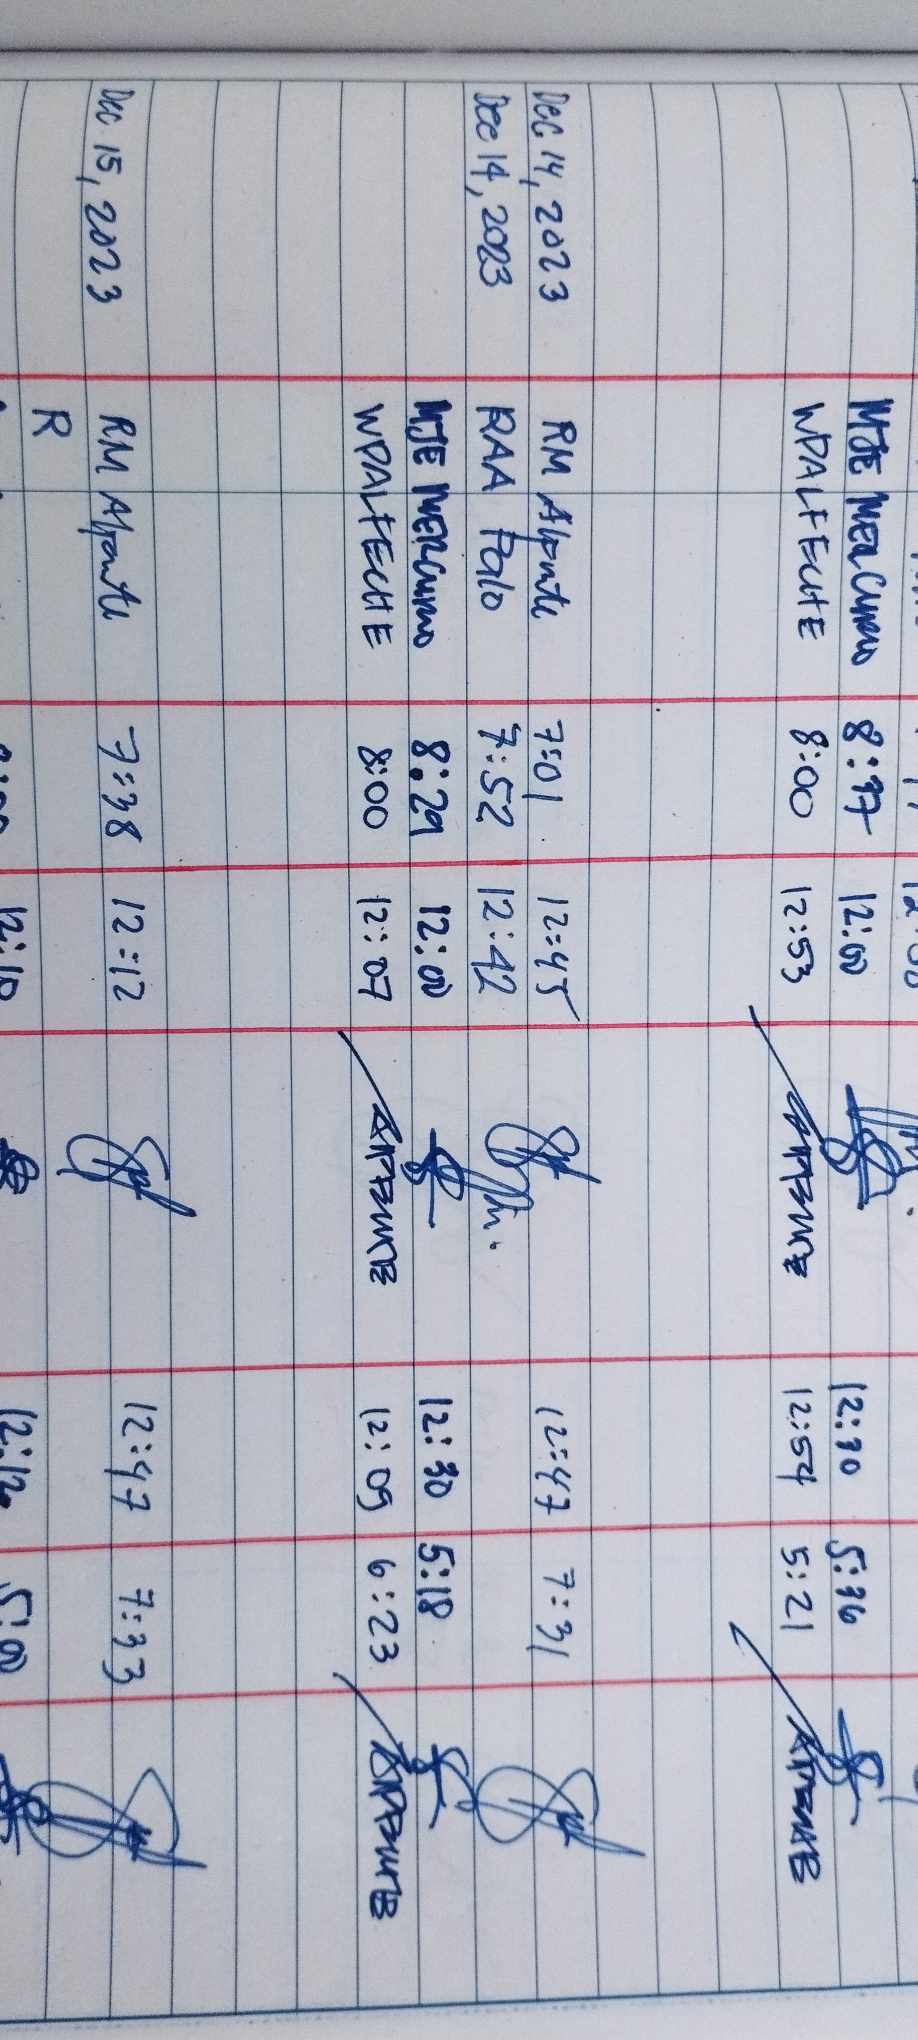 MJE MERCURIO 8:37 12:00 12:30 5:36
WPALFECHE 8:00 12:53 12:54 5:21
Dec 14, 2023 RM Alponte 7:01 12:45 12:47 7:31
Dec 14, 2023 RAA Palo 7:52 12:42
MJE MERCURIO 8:29 12:00 12:30 5:18
WPALFECHE 8:00 12:07 12:09 6:23
Dec 15, 2023 RM Alponte 7:38 12:12 12:47 7:33
R
12:10 12:12 5:00